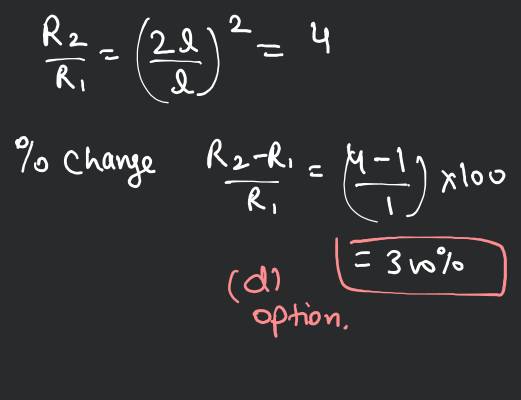 R₂/R₁ = (2l/l)² = 4
% Change (R₂-R₁)/R₁ = ((4-1)/1) ×100
= 300%
(d)
option.